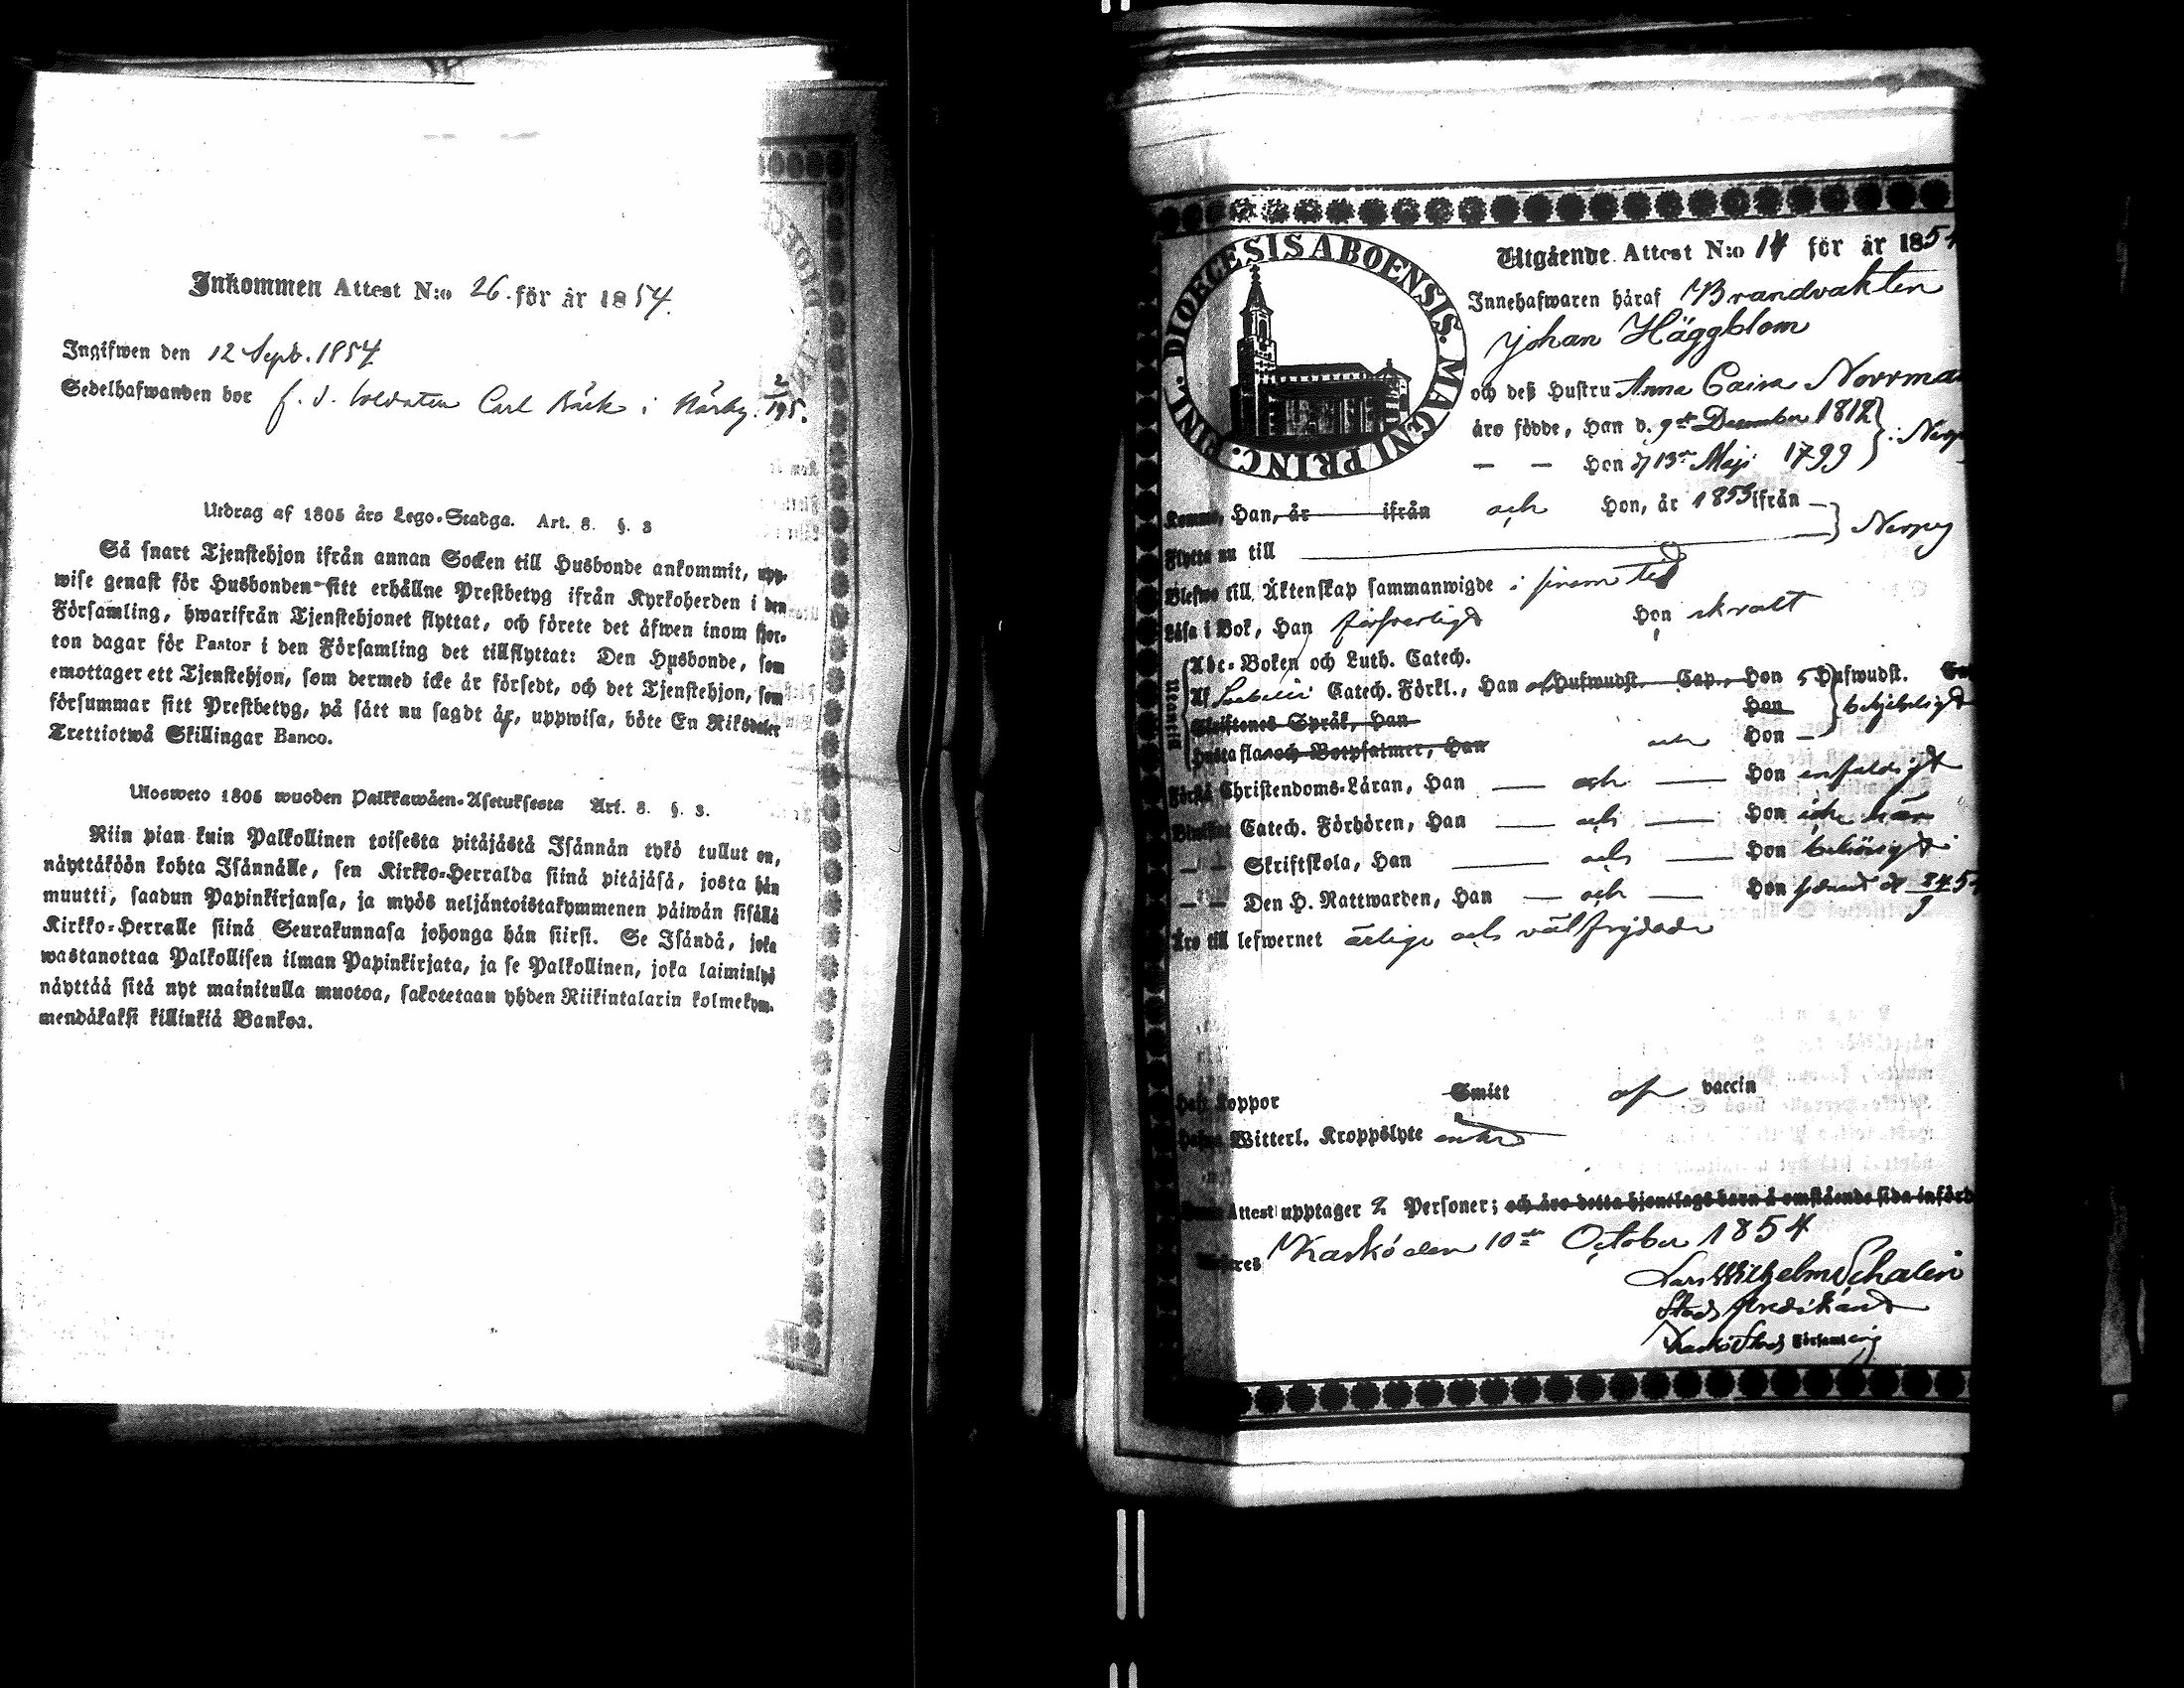 Inkommen Attest N:o 26. för år 1854.
Ingifwen den 12 Sept. 1854
Sedelhafwanden bor f. d. Soldaten Carl Bäck i Närby. 2/195.
Utdrag af 1805 års Lego-Stadga. Art. 8. §. 3
Så snart Tjenstehjon ifrån annan Socken till Husbonde ankommit, upp-
wise genast för Husbonden sitt erhållne Prestbetyg ifrån Kyrkoherden i den
Församling, hwarifrån Tjenstehjonet flyttat, och förete det äfwen inom fjor-
ton dagar för Pastor i den Församling det tillflyttat: Den Husbonde, som
emottager ett Tjenstehjon, som dermed icke är försedt, och det Tjenstehjon, som
försummar sitt Prestbetyg, på sätt nu sagdt är, uppwisa, böte En Riksdaler
Trettiotwå Skillingar Banco.
Ulosweto 1805 wuoden Palkkawäen-Asetuksesta Art. 8. §. 3.
Niin pian kuin Palkollinen toisesta pitäjästä Isännän tykö tullut on,
näyttäköön kohta Isännälle, sen Kirkko-Herralda siinä pitäjäsä, josta hän
muutti, saadun Papinkirjansa, ja myös neljäntoistakymmenen päiwän sisällä
Kirkko-Herralle siinä Seurakunnasa johonga hän siirsi. Se Isändä, joka
wastanottaa Palkollisen ilman Papinkirjata, ja se Palkollinen, joka laiminlyö
näyttää sitä nyt mainitulla muotoa, sakotetaan yhden Riikintalarin kolmekym-
mendäkaksi killinkiä Bankoa.
DIOECESIS ABOENSIS. MAGNI PRINC. FINL.
Utgående Attest N:o 14 för år 185
Innehafwaren häraf Brandvakten
Johan Häggblom
och deß Hustru Anna Caisa Norrma
äro födde, Han d. 9de December 1812
— — Hon d 13de Maji 1799
Komne, Han, år ifrån och Hon, år 1853 ifrån —
Flytta nu till Nerpes
Blefwo till Äktenskap sammanwigde i sinom tid
Läsa i Bok, Han försvarligt Hon skralt
Abc-Boken och Luth. Catech.
Af Svebilii Catech. Förkl., Han och Hufwudst. Cap., Hon 5 Hufwudst.
Skriftenes Språk, Han Han
Hustaflan och Botpsalmer, Han och Hon —
Förstå Christendoms-Läran, Han — och — Hon enfaldigt
Bewistat Catech. Förhören, Han — och — Hon icke här
— — Skriftskola, Han — och — Hon behörigt
— — Den H. Nattwarden, Han — och — Hon senast d
Äro till lefwernet ärlige och välfrejdade
Haft koppor Smitt af vaccin
Hafwa Witterl. Kroppslyte
Denna Attest upptager 2 Personer; och äro detta hjonelags barn å omstående sida införd
Kaskö den 10de October 1854
Lars Wilhelm Schalin
Stads Predikant
Kaskö Stads Församling